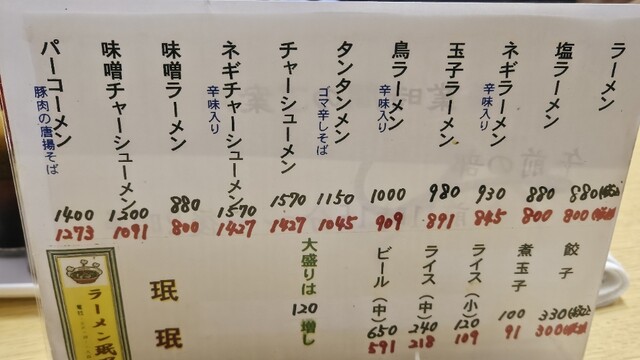 ラーメン 880(税込) 800(税抜)
塩ラーメン 880 800
ネギラーメン 辛味入り 930 845
玉子ラーメン 980 891
鳥ラーメン 辛味入り 1000 909
タンタンメン ゴマ辛しそば 1150 1045
チャーシューメン 1570 1427
ネギチャーシューメン 辛味入り 1570 1427
味噌ラーメン 880 800
味噌チャーシューメン 1200 1091
パーコーメン 豚肉の唐揚そば 1400 1273
餃子 330(税込) 300(税抜)
煮玉子 100 91
ライス(小) 120 109
ライス(中) 240 218
ビール(中) 650 591
大盛りは120増し
珉珉
ラーメン珉